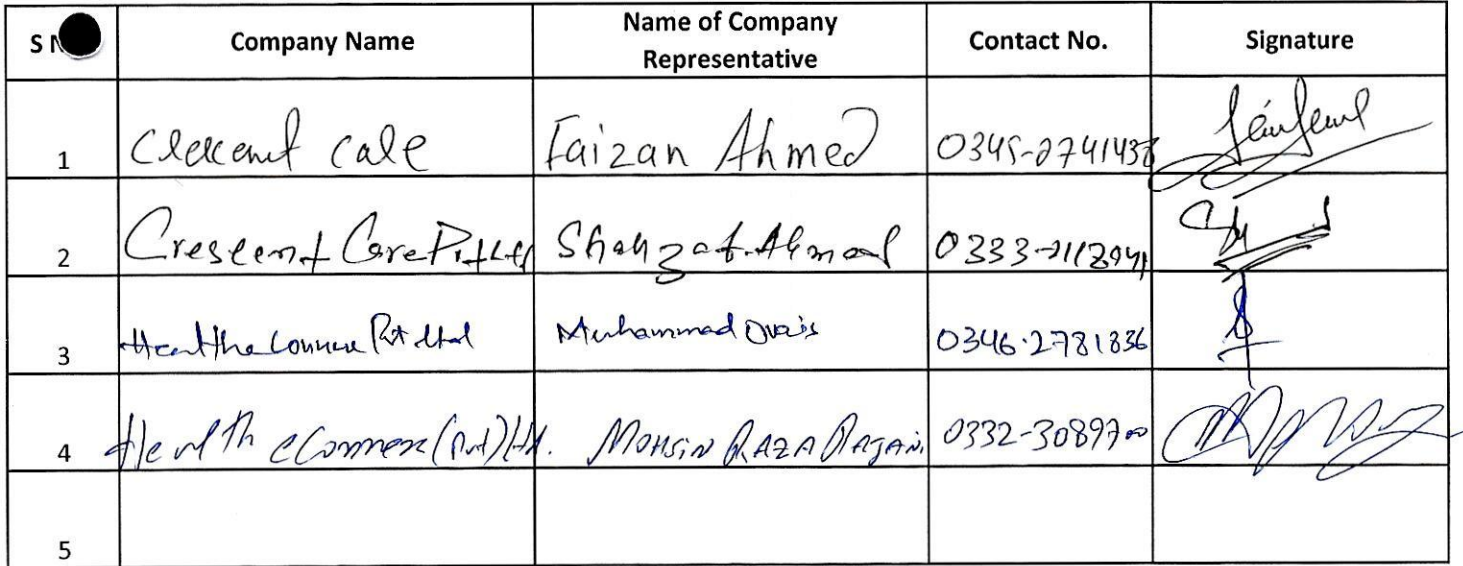 S N Company Name Name of Company Representative Contact No. Signature
1 Crescent Care Faizan Ahmed 0345-2741438
2 Crescent Care Pvt Ltd Shahzat Ahmad 0333-2113941
3 Healthe Commerce Pvt Ltd Muhammad Ovais 0346-2781836
4 Health eCommerce (Pvt) Ltd. MOHSIN RAZA RAJANI 0332-3089700
5